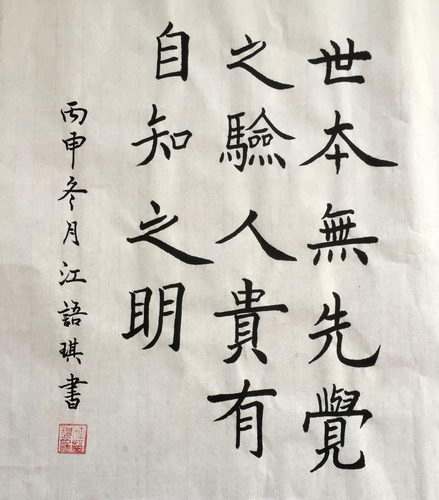 世本無先覺
之驗人貴有
自知之明
丙申冬月江語琪書